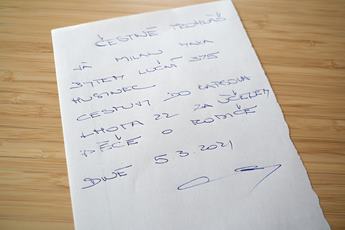 ČESTNÉ PROHLÁŠ
JÁ MILAN
BYTEM LUČNÍ 375
HUSINEC
CESTUJI DO
LHOTA 22 ZA ÚČELEM
PÉČE O RODIČE
DNE 5.3.2021